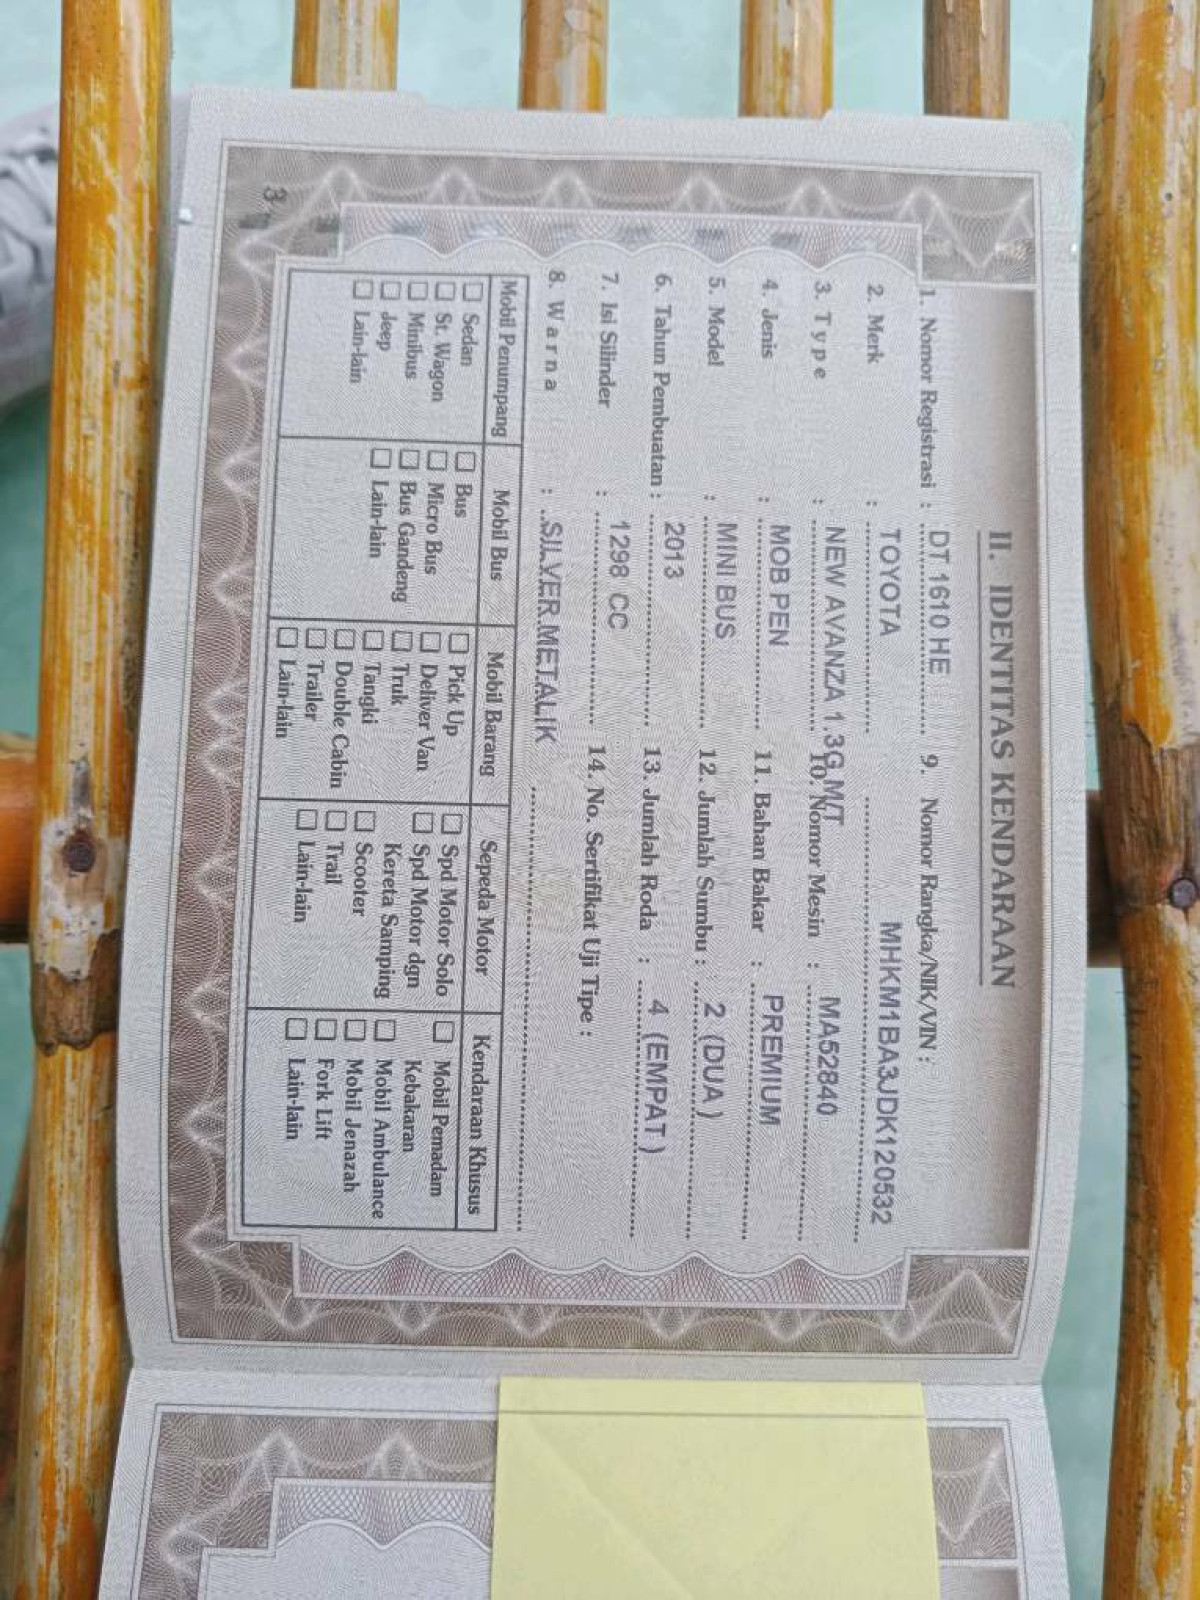 II. IDENTITAS KENDARAAN
1. Nomor Registrasi : DT 1610 HE
2. Merk : TOYOTA
3. Type : NEW AVANZA 1,3G M/T
4. Jenis : MOB PEN
5. Model : MINI BUS
6. Tahun Pembuatan : 2013
7. Isi Silinder : 1298 CC
8. Warna : SILVER METALIK
9. Nomor Rangka/NIK/VIN :
MHKM1BA3JDK120532
10. Nomor Mesin : MA52840
11. Bahan Bakar : PREMIUM
12. Jumlah Sumbu : 2 (DUA)
13. Jumlah Roda : 4 (EMPAT)
14. No. Sertifikat Uji Tipe :
Mobil Penumpang
Sedan
St. Wagon
Minibus
Jeep
Lain-lain
Mobil Bus
Bus
Micro Bus
Bus Gandeng
Lain-lain
Mobil Barang
Pick Up
Deliver Van
Truk
Tangki
Double Cabin
Trailer
Lain-lain
Sepeda Motor
Spd Motor Solo
Spd Motor dgn
Kereta Samping
Scooter
Trail
Lain-lain
Kendaraan Khusus
Mobil Pemadam
Kebakaran
Mobil Ambulance
Mobil Jenazah
Fork Lift
Lain-lain
3